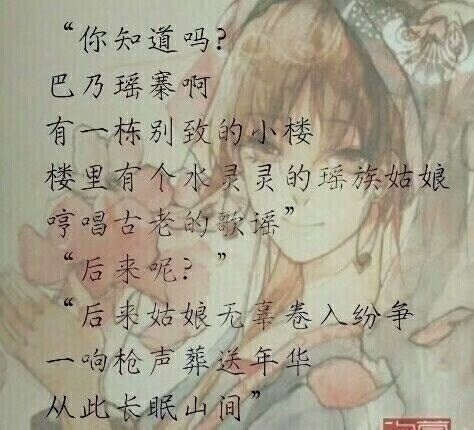 “你知道吗?
巴乃瑶寨啊
有一栋别致的小楼
楼里有个水灵灵的瑶族姑娘
哼唱古老的歌谣”
“后来呢？”
“后来姑娘无辜卷入纷争
一响枪声葬送年华
从此长眠山间”